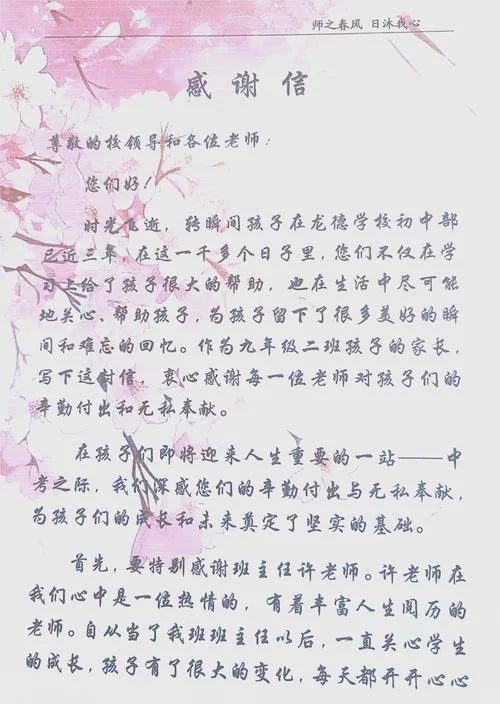 师之春风 日沐我心
感谢信
尊敬的校领导和各位老师：
您们好！
时光飞逝，转瞬间孩子在龙德学校初中部
已近三年，在这一千多个日子里，您们不仅在学
习上给了孩子很大的帮助，也在生活中尽可能
地关心、帮助孩子，为孩子留下了很多美好的瞬
间和难忘的回忆。作为九年级二班孩子的家长，
写下这封信，衷心感谢每一位老师对孩子们的
辛勤付出和无私奉献。
在孩子们即将迎来人生重要的一站——中
考之际，我们深感您们的辛勤付出与无私奉献，
为孩子们的成长和未来奠定了坚实的基础。
首先，要特别感谢班主任许老师。许老师在
我们心中是一位热情的，有着丰富人生阅历的
老师。自从当了我班班主任以后，一直关心学生
的成长，孩子有了很大的变化，每天都开开心心